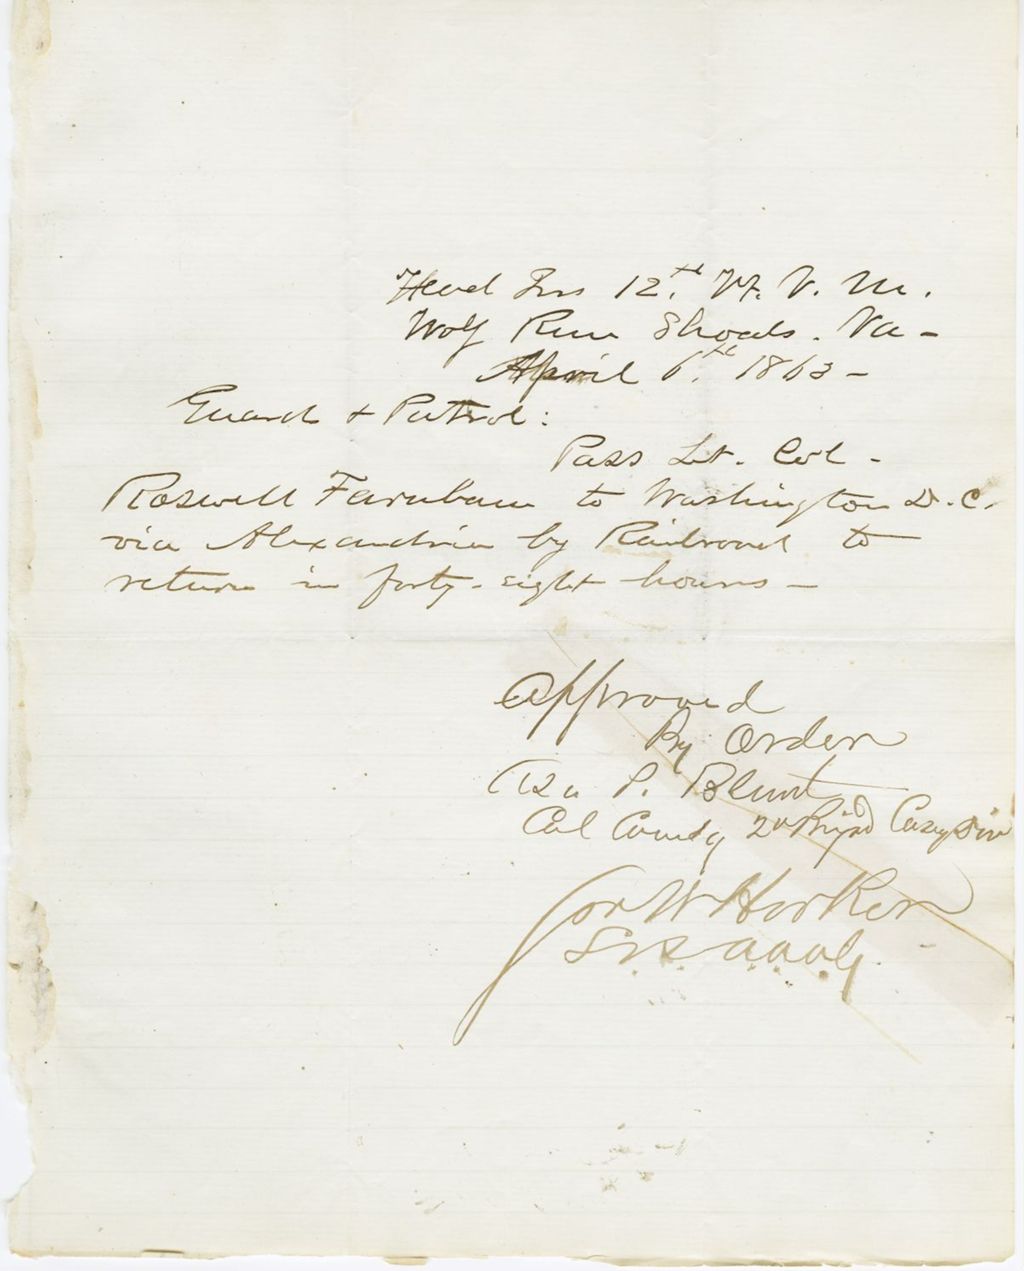 Head Qrs 12.th Vt. V. M.
Wolf Run Shoals. Va -
April 6.th 1863 -
Guard & Patrol:
Pass Lt. Col.
Roswell Farnham to Washington D. C.
via Alexandria by Railroad to
return in forty-eight hours -
Approved
By Order
Asa P. Blunt
Col Comdg 2d Brigd Casey Div
Hooker